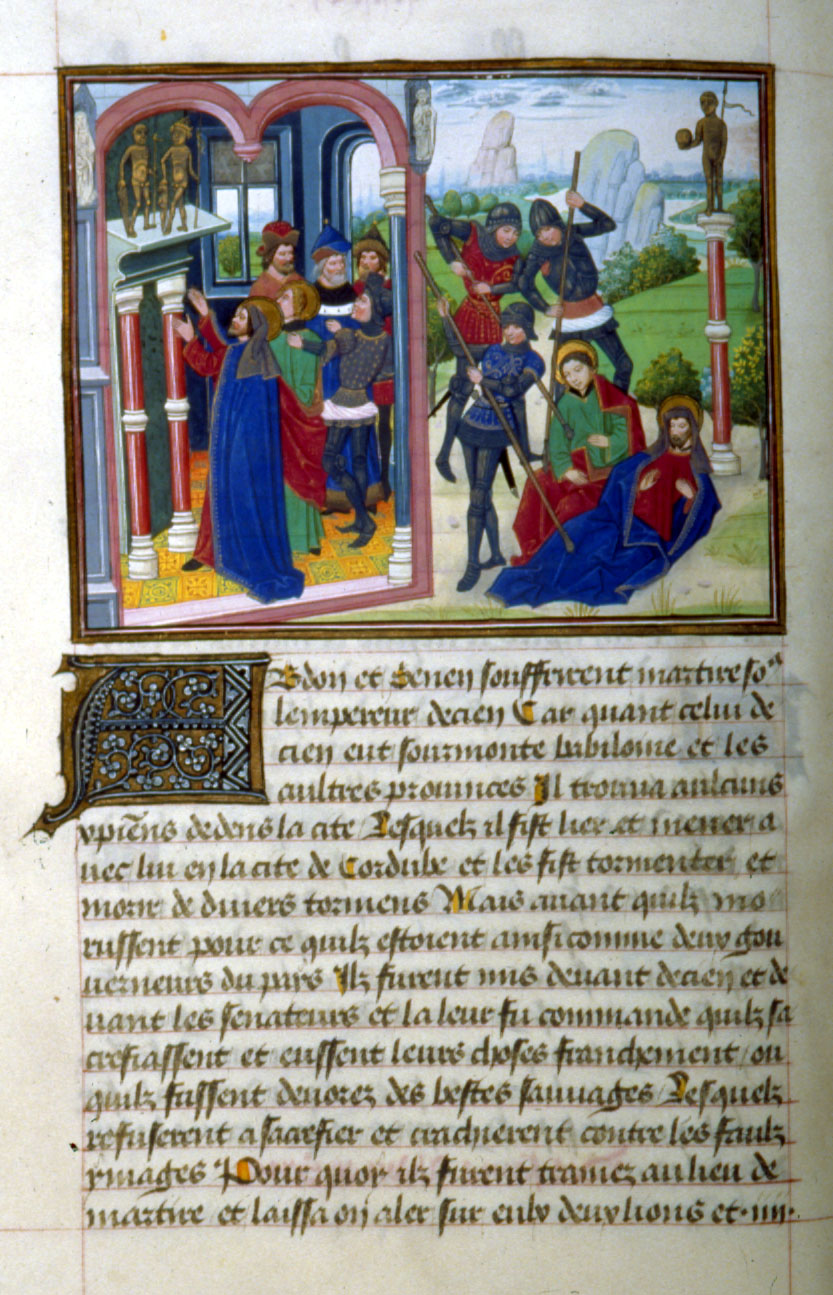 Abdon et Senen souffrirent martire so(us)
lempereur decien Car quant celui de
cien eut sourmonte babiloine et les
aultres prouinces Il trouua aulcuns
xpiens dedens la cite Lesquelz il fist lier et mener a
uec lui en la cite de Cordube et les fist tormenter et
morir de diuers tormens Mais auant quilz mo
russent pour ce quilz estoient ainsi comme deux gou
uerneurs du pays Ilz furent mis deuant decien et de
uant les senateurs et la leur fu commande quilz sa
crefiassent et eussent leurs choses franchement ou
quilz fussent deuorez des bestes sauuages Lesquelz
refuserent a sacrefier et crachierent contre les faulz
ymages Pour quoy ilz furent trainez au lieu de
martire et laissa on aler sur eulx deux lions et .iiii.